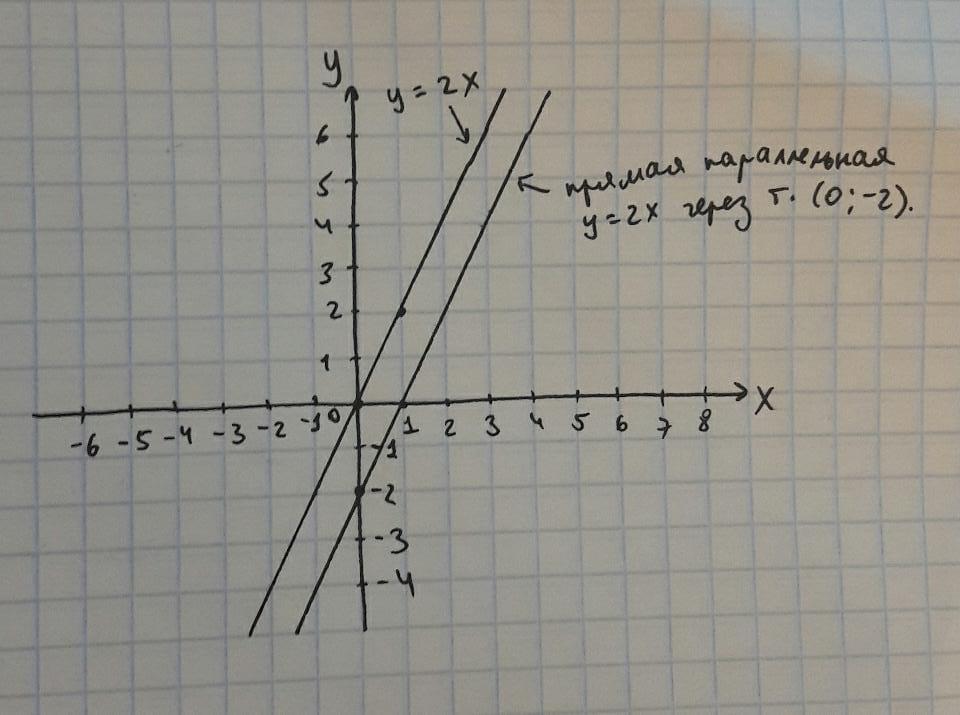 y
y = 2x
6
5
4
3
2
1
прямая параллельная
y=2x через т. (0;-2).
-6 -5 -4 -3 -2 -1 0 1 2 3 4 5 6 7 8 x
-1
-2
-3
-4